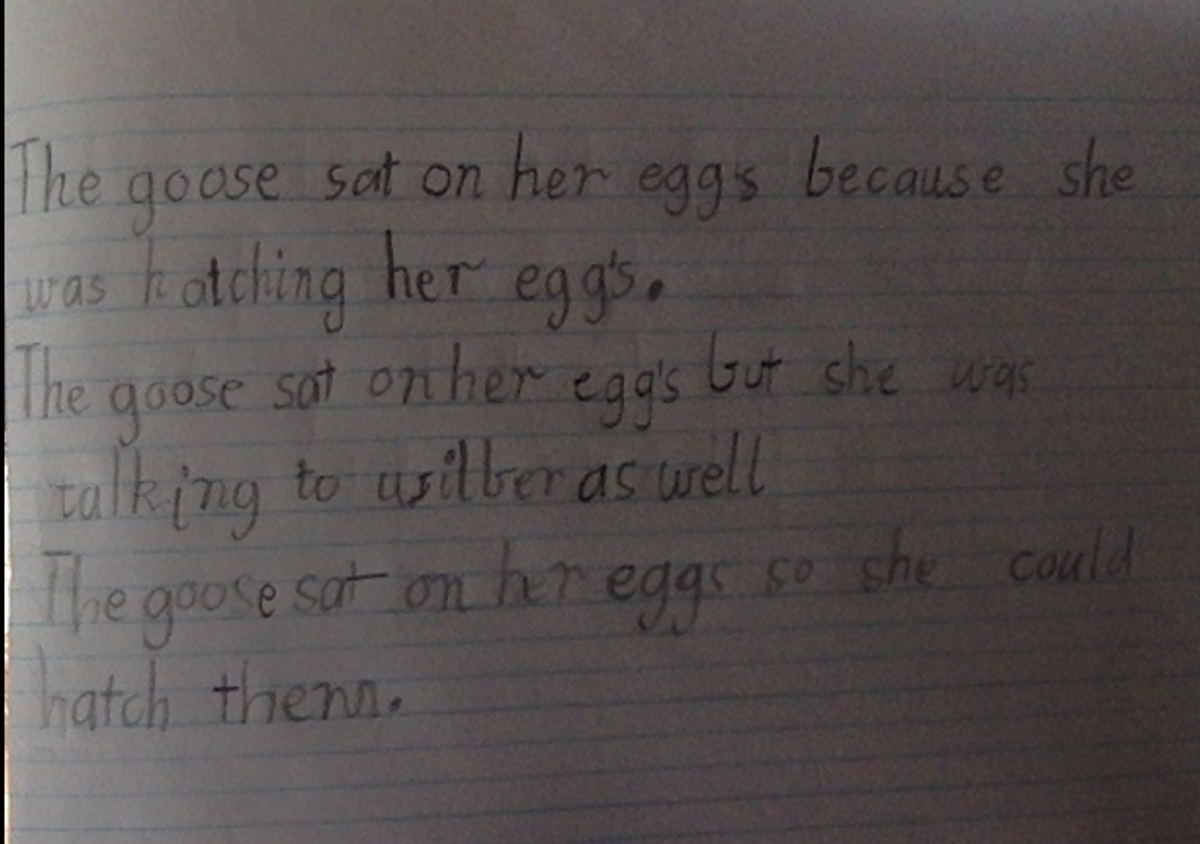 The goose sat on her eggs because she
was hatching her egg's.
The goose sat on her egg's but she was
talking to wilber as well
The goose sat on her eggs so she could
hatch them.